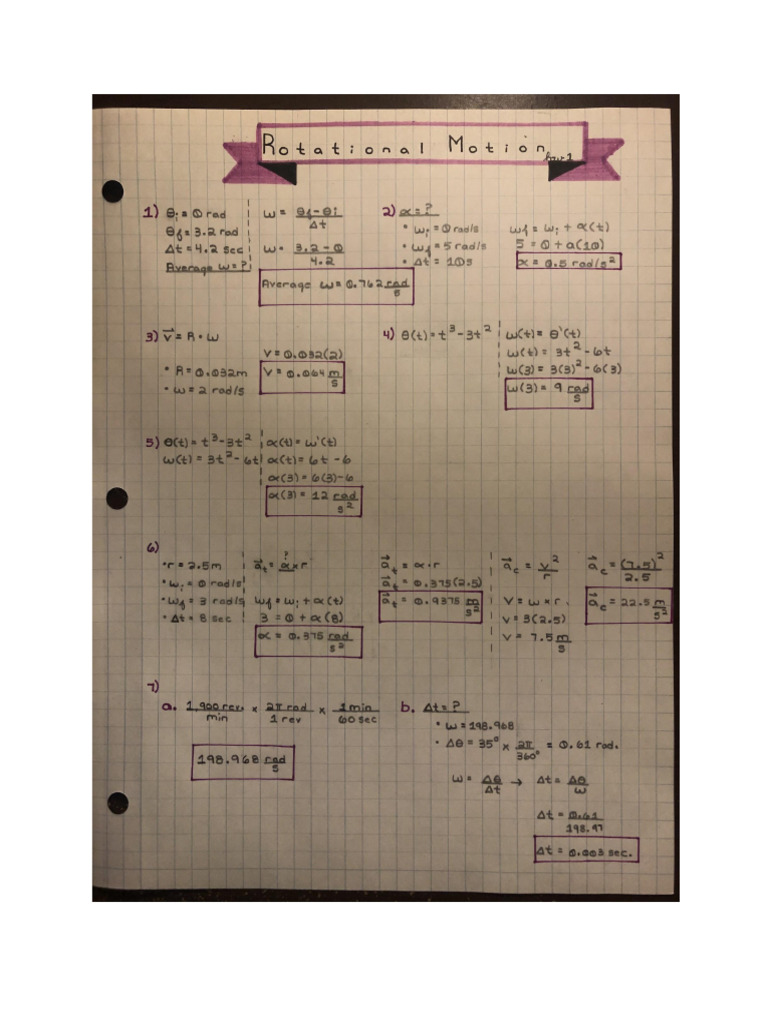 Rotational Motion
1) θi = 0 rad
θf = 3.2 rad
Δt = 4.2 sec
Average ω = ?
ω = θf-θi / Δt
ω = 3.2 - 0 / 4.2
Average ω = 0.762 rad/s
2) α = ?
• ωi = 0 rad/s
• ωf = 5 rad/s
• Δt = 10s
ωf = ωi + α(t)
5 = 0 + α(10)
α = 0.5 rad/s²
3) v⃗ = R • ω
• R = 0.032m
• ω = 2 rad/s
V = 0.032(2)
V = 0.064 m/s
4) θ(t) = t³ - 3t²
ω(t) = θ'(t)
ω(t) = 3t² - 6t
ω(3) = 3(3)² - 6(3)
ω(3) = 9 rad/s
5) θ(t) = t³ - 3t²
ω(t) = 3t² - 6t
α(t) = ω'(t)
α(t) = 6t - 6
α(3) = 6(3) - 6
α(3) = 12 rad/s²
6)
• r = 2.5m
• ωi = 0 rad/s
• ωf = 3 rad/s
• Δt = 8 sec
?
a⃗t = α × r
ωf = ωi + α(t)
3 = 0 + α(8)
α = 0.375 rad/s²
a⃗t = α • r
a⃗t = 0.375(2.5)
a⃗t = 0.9375 m/s²
a⃗c = v²/r
V = ω × r
V = 3(2.5)
V = 7.5 m/s
a⃗c = (7.5)²/2.5
a⃗c = 22.5 m/s²
7)
a. 1,900 rev/min × 2π rad/1 rev × 1 min/60 sec
198.968 rad/s
b. Δt = ?
• ω = 198.968
• Δθ = 35° × 2π/360° = 0.61 rad.
ω = Δθ/Δt → Δt = Δθ/ω
Δt = 0.61/198.97
Δt = 0.003 sec.